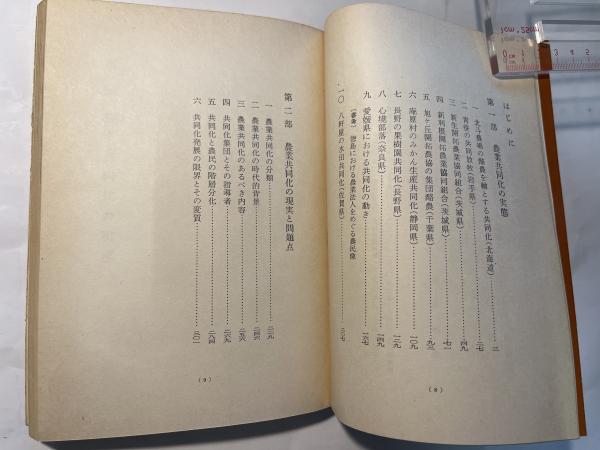 はじめに
第一部 農業共同化の実態
一 北斗農場の酪農を軸とする共同化(北海道)……二
二 青笹の共同放牧(岩手県)……二七
三 新生開拓農業協同組合(茨城県)……四九
四 新利根開拓農業協同組合(茨城県)……七一
五 旭ヶ丘開拓農協の集団酪農(千葉県)……九三
六 庵原村のみかん生産共同化(静岡県)……一〇九
七 長野の果樹園共同化(長野県)……一二九
八 心境部落(奈良県)……一四九
九 愛媛県における共同化の動き……一六七
(参考) 徳島における農業法人をめぐる農民像
一〇 八軒屋の水田共同化(佐賀県)……二〇七
(8)
第二部 農業共同化の現実と問題点
一 農業共同化の分類……二二九
二 農業共同化の時代的背景……二四六
三 農業共同化のあるべき内容……二五六
四 共同化集団とその指導者……二六九
五 共同化と農民の階層分化……二八四
六 共同化発展の限界とその変質……三〇一
(9)
1cm .25cm
0 cm 1 2 3 4 5